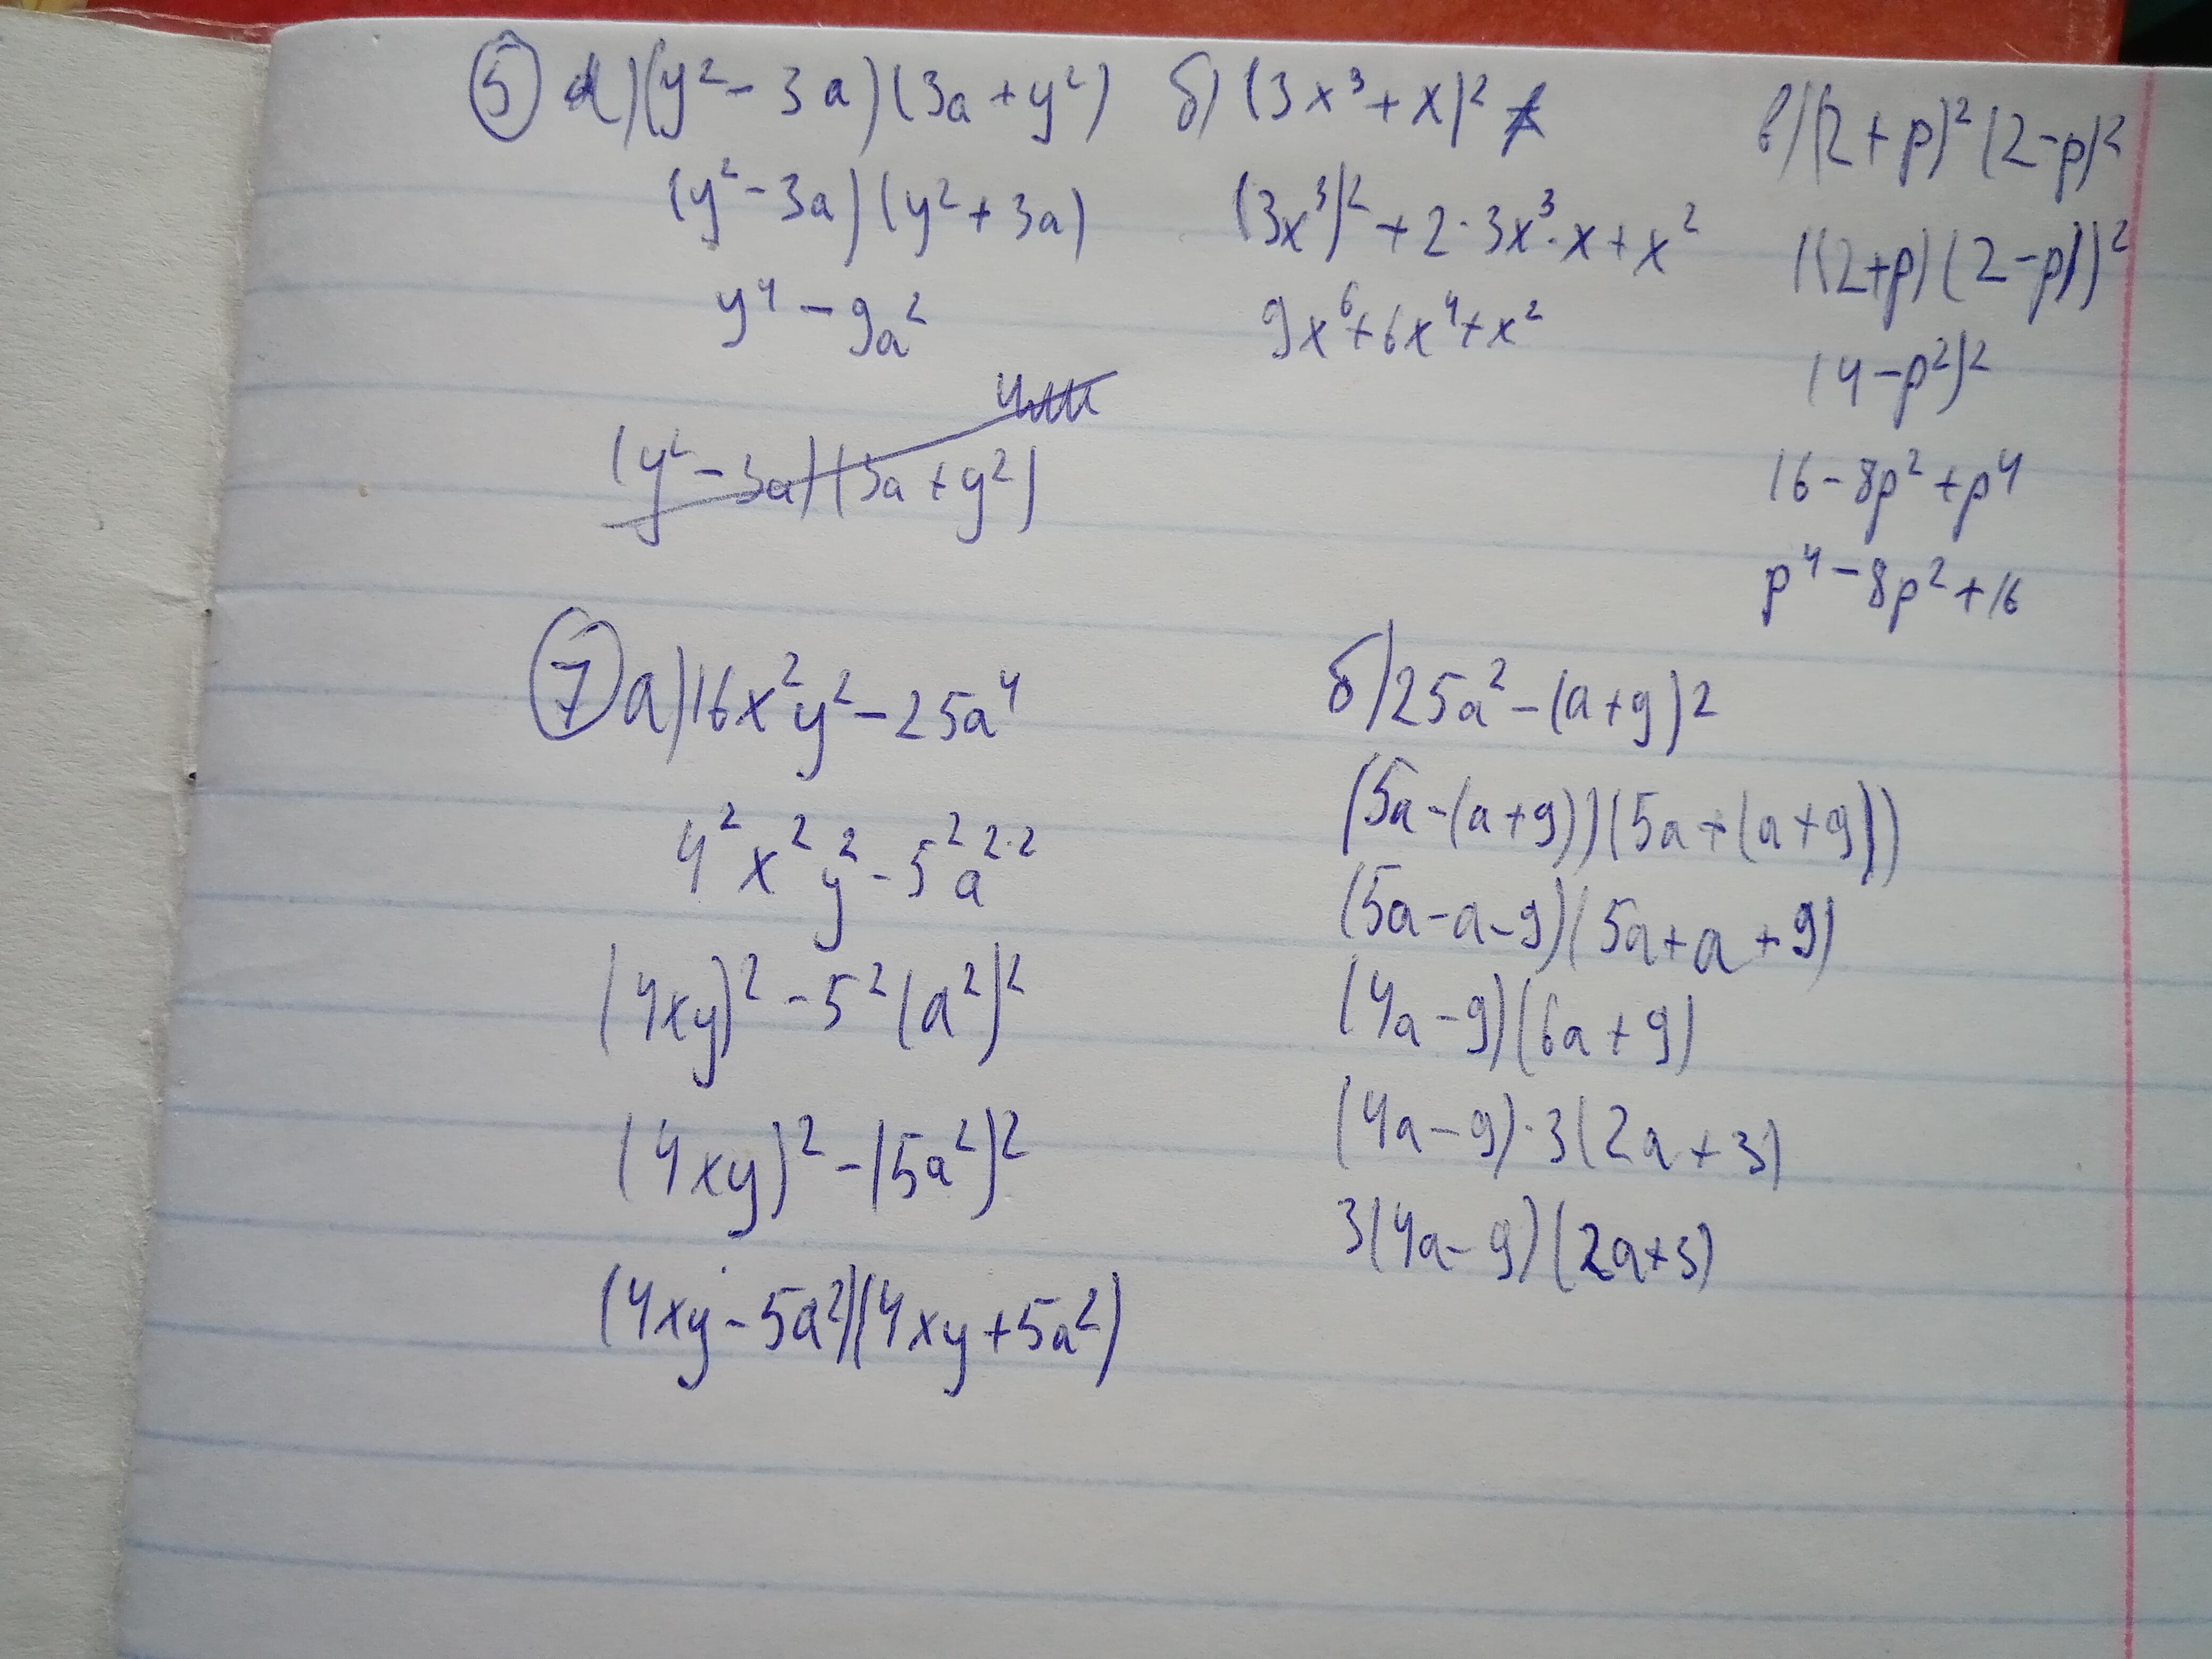 5 а) (y² - 3a)(3a + y²)
(y² - 3a)(y² + 3a)
y⁴ - 9a²
(y² - 3a)(3a + y²)
б) (3x³ + x)²
(3x³)² + 2 · 3x³ · x + x²
9x⁶ + 6x⁴ + x²
в) (2 + p)² (2 - p)²
((2+p)(2-p))²
(4 - p²)²
16 - 8p² + p⁴
p⁴ - 8p² + 16
7 а) 16x²y² - 25a⁴
4² x² y² - 5² a²·²
(4xy)² - 5² (a²)²
(4xy)² - (5a²)²
(4xy - 5a²)(4xy + 5a²)
б) 25a² - (a + 9)²
(5a - (a + 9))(5a + (a + 9))
(5a - a - 9)(5a + a + 9)
(4a - 9)(6a + 9)
(4a - 9) · 3(2a + 3)
3(4a - 9)(2a + 3)